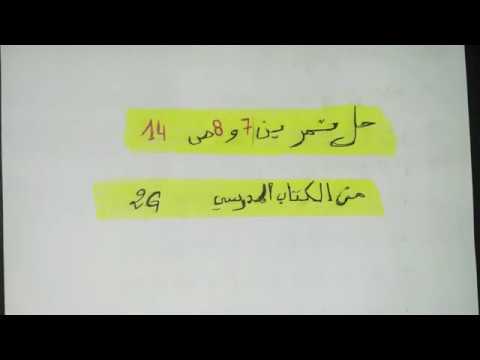 حل تمرين 7 و 8 ص 14
من الكتاب المدرسي 2G